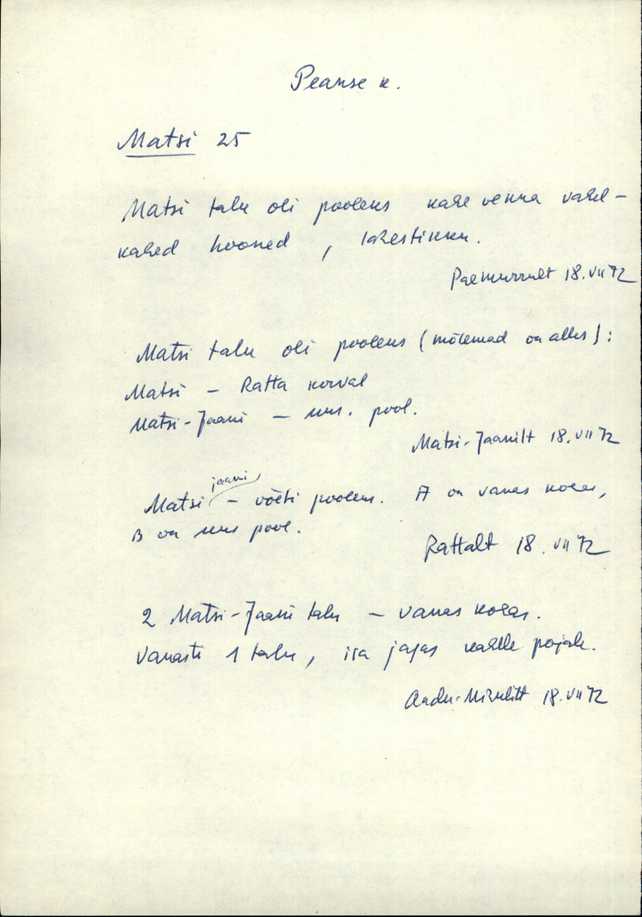 Peanse k.
Matsi 25
Matsi talu oli pooleks kahe venna vahel –
kahed hooned, lähestikku.
Paemurrult 18.VII 72
Matsi talu oli pooleks (mõlemad on alles):
Matsi – Ratta kõrval
Matsi-Jaani – uus. pool.
Matsi-Jaanilt 18.VII 72
jaani
Matsi – võeti pooleks. A on vanas kohas,
B on uus pool.
Rattalt 18.VII 72
2 Matsi-Jaani talu – vanas kohas.
Vanasti 1 talu, isa jagas kahele pojale.
18.VII 72